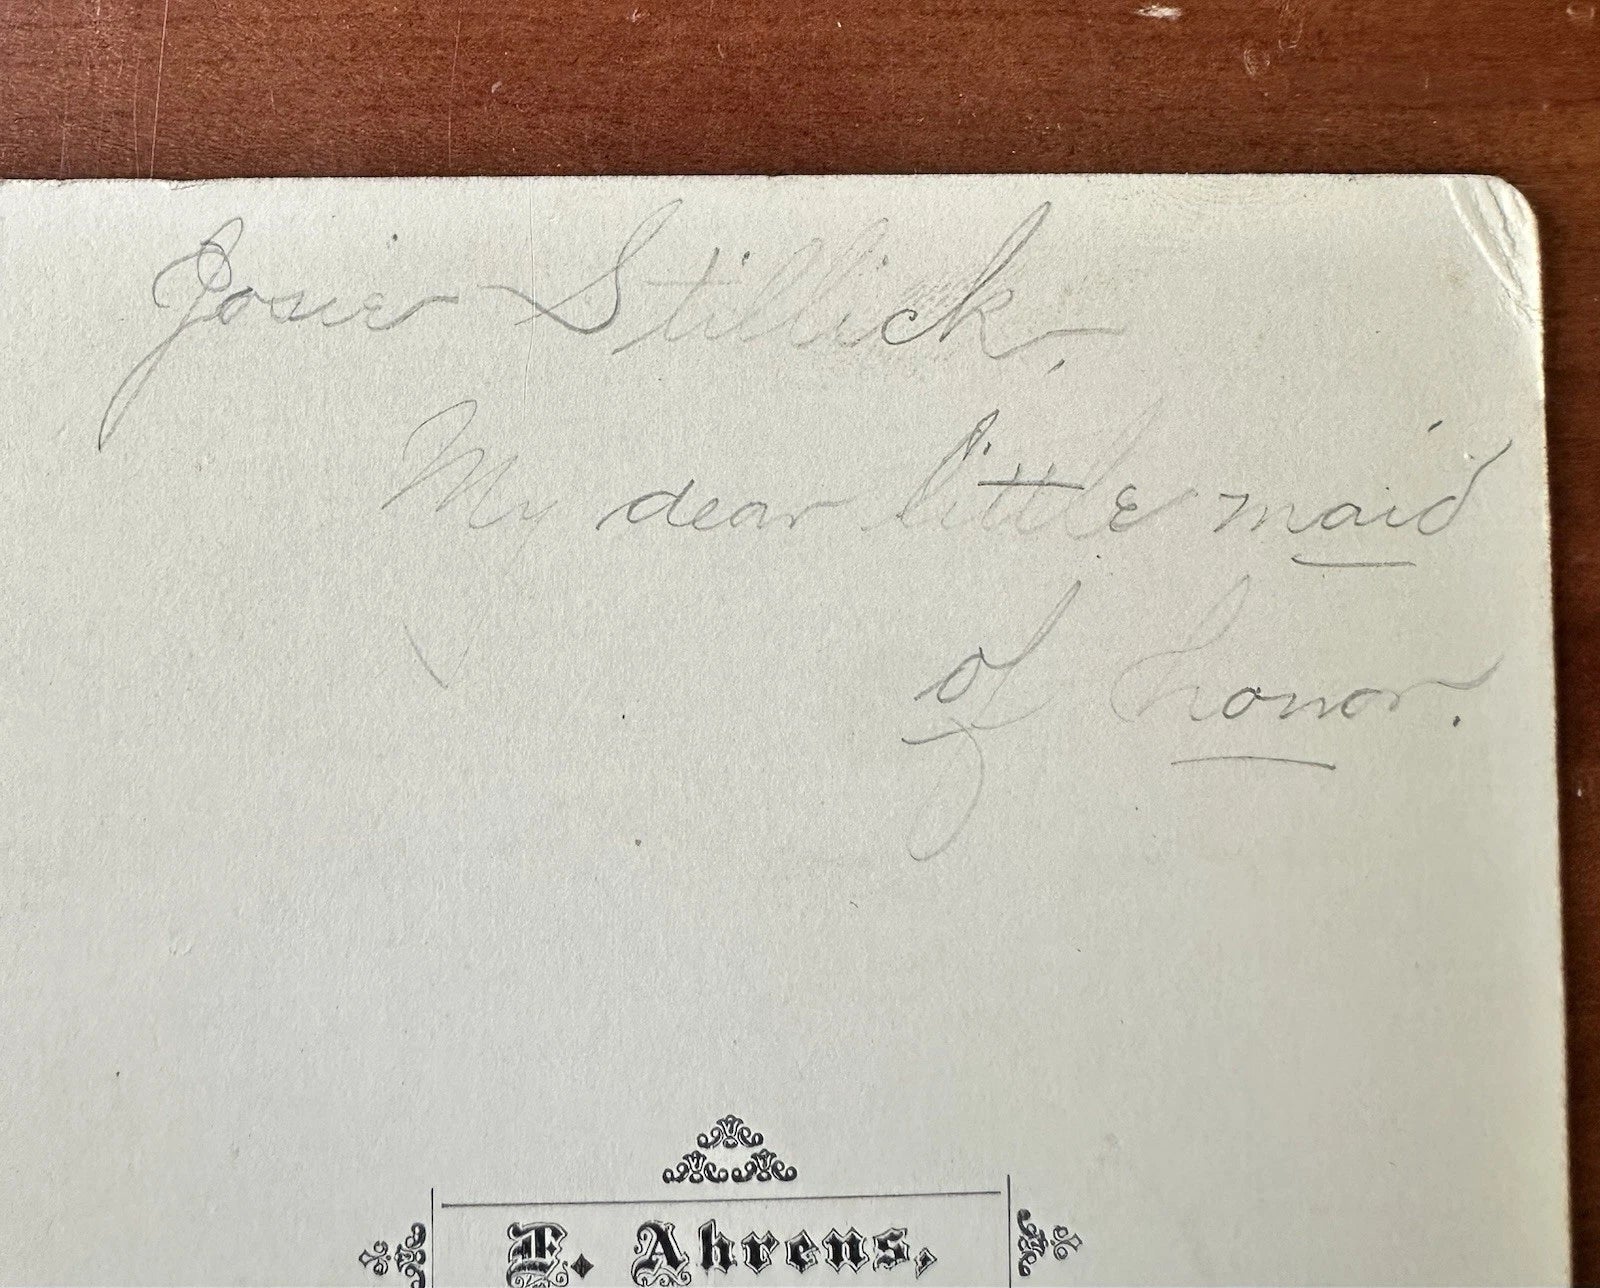 Josie Stillick.
My dear little maid
of honor.
E. Ahrens,